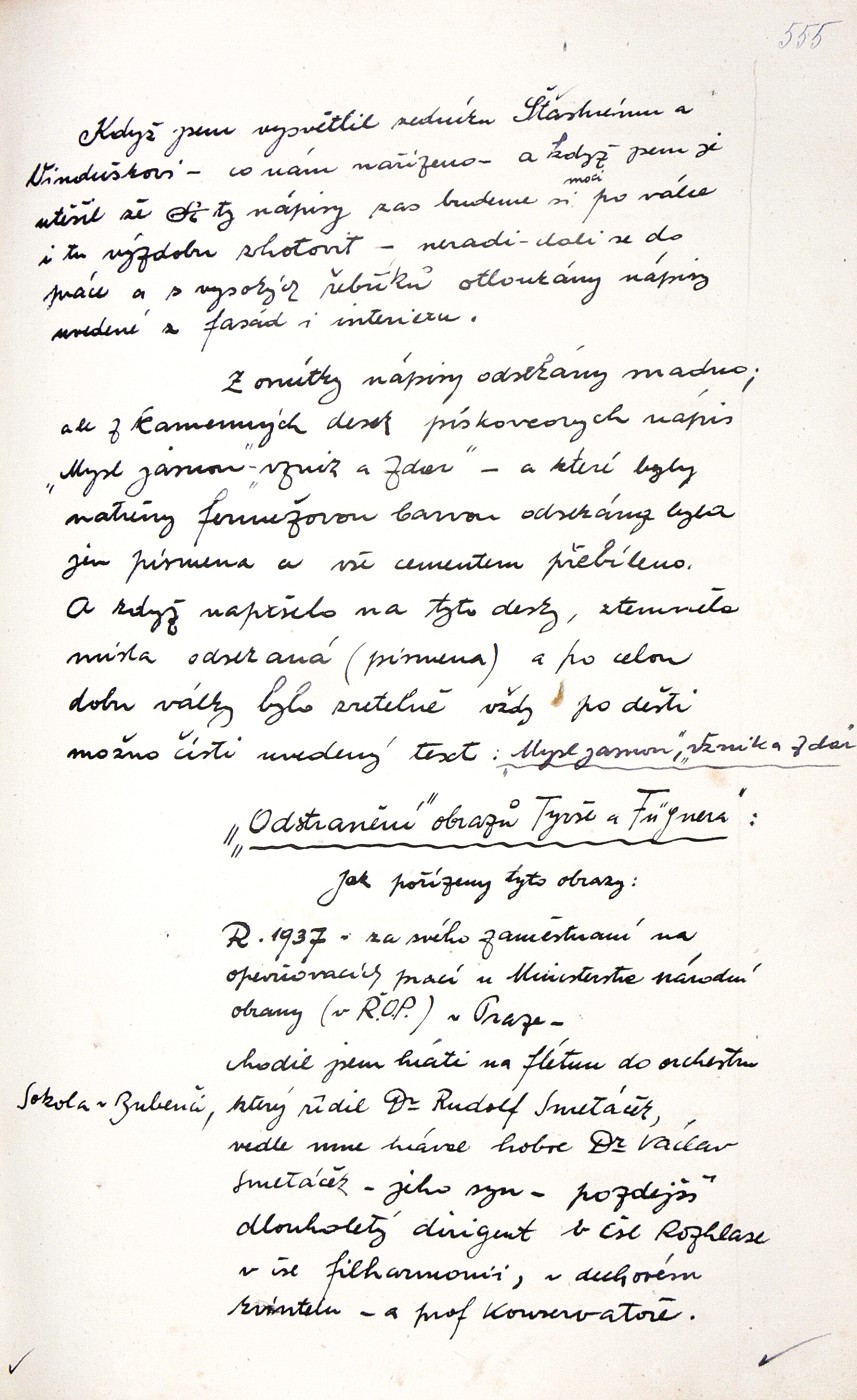 555
Když jsem vysvětlil zedníku Šťastnému a
Vinduškovi - co nám nařízeno - a když jsem je
utěšil že ty nápisy zas budeme si moci po válce
i tu výzdobu zhotovit - neradi - dali se do
práce a s vysokých řebříků otloukány nápisy
uvedené z fasád i interieru.
Z omítky nápisy odsekány snadno;
ale z kamenných desek pískovcových nápis
„Mysl jasnou" - „vznik a zdar" - a které byly
natřeny fermežovou barvou odsekány byla
jen písmena a vše cementem přebíleno.
A když napršelo na tyto desky, ztemněla
místa odsekaná (písmena) a po celou
dobu války bylo zretelně vždy po dešti
možno čísti uvedený text: „Mysl jasnou", „vznik a zdar"
„„Odstranění" obrazů Tyrše a Fügnera":
Jak pořízeny tyto obrazy:
R. 1937 - za svého zaměstnaní na
opevňovacích prací u Ministerstva národní
obrany (v Ř.O.P.) v Praze -
chodil jsem hráti na flétnu do orchestru
Sokola v Bubenči, který řídil Dr Rudolf Smetáček,
vedle mne hrával hoboe Dr Václav
Smetáček - jeho syn - pozdejší
dlouholetý dirigent v čsl Rozhlase
v čse filharmonii, v dechovém
kvintetu - a prof Konservatoře.